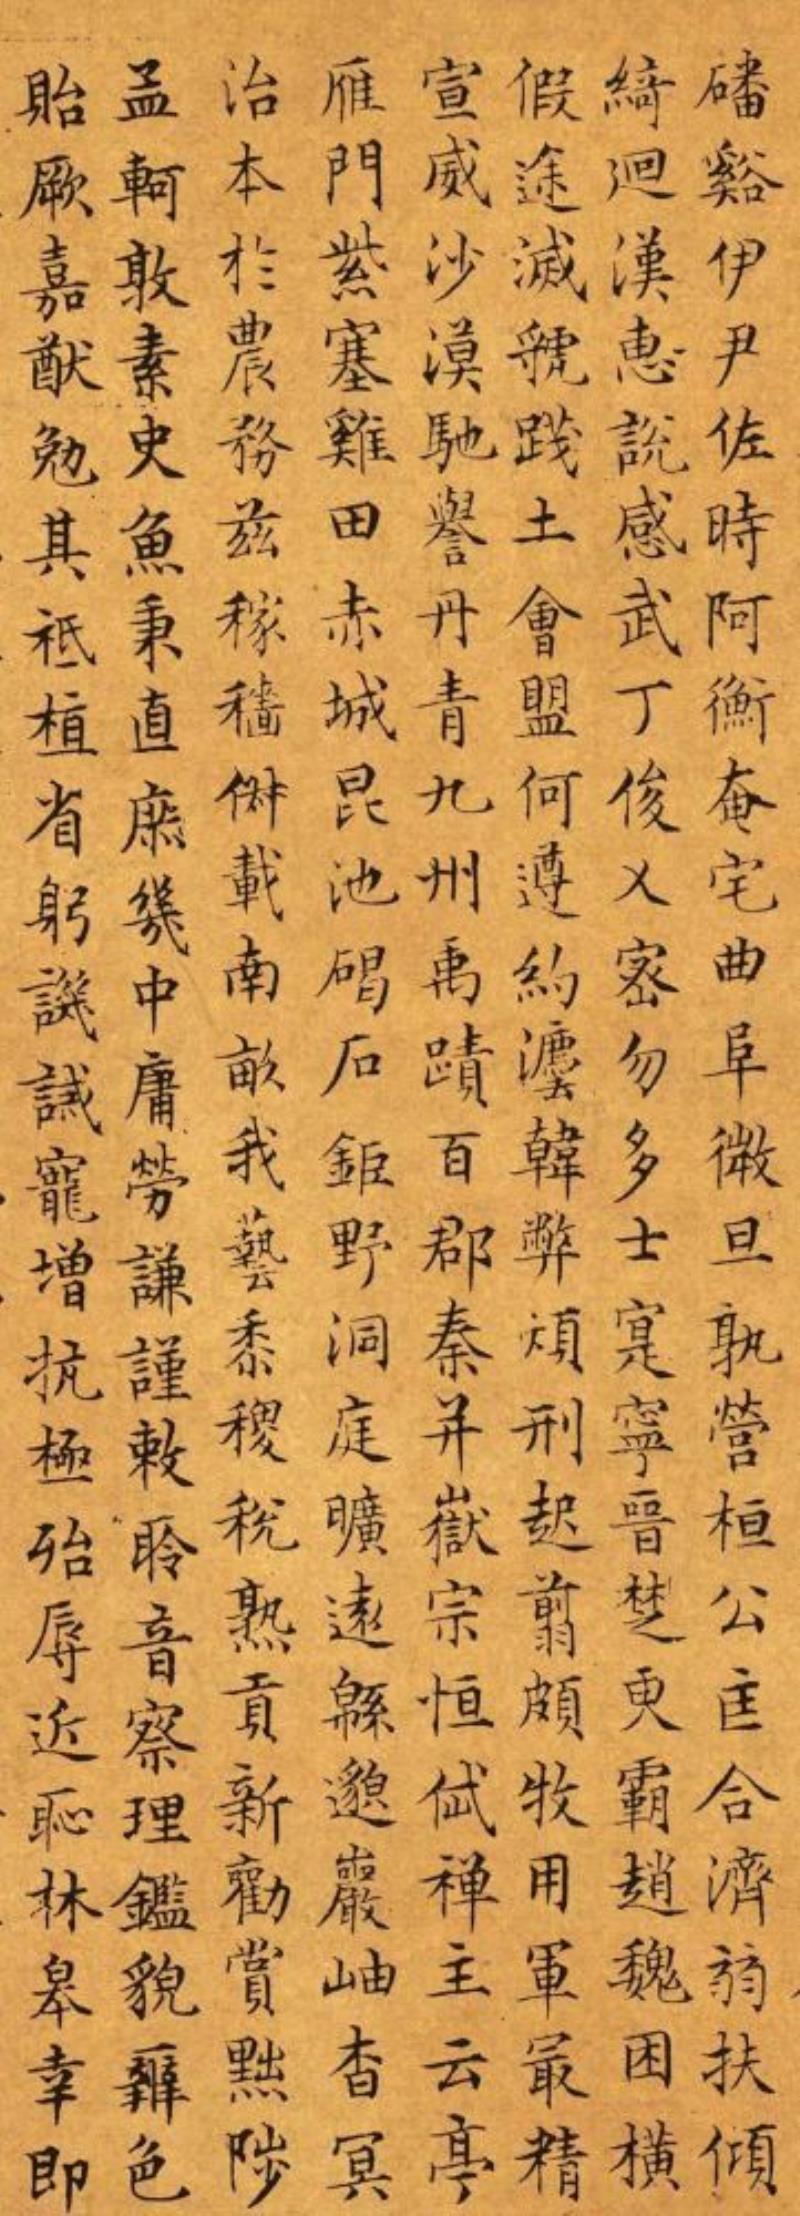 磻谿伊尹佐時阿衡奄宅曲阜微旦孰營桓公匡合濟弱扶傾
綺迴漢惠說感武丁俊乂密勿多士寔寧晉楚更霸趙魏困橫
假途滅虢踐土會盟何遵約法韓弊煩刑起翦頗牧用軍最精
宣威沙漠馳譽丹青九州禹蹟百郡秦并嶽宗恒岱禅主云亭
雁門紫塞雞田赤城昆池碣石鉅野洞庭曠遠緜邈巖岫杳冥
治本於農務茲稼穡俶載南畝我藝黍稷稅熟貢新勸賞黜陟
孟軻敦素史魚秉直庶幾中庸勞謙謹敕聆音察理鑑貌辨色
貽厥嘉猷勉其祗植省躬譏誡寵增抗極殆辱近恥林皋幸即